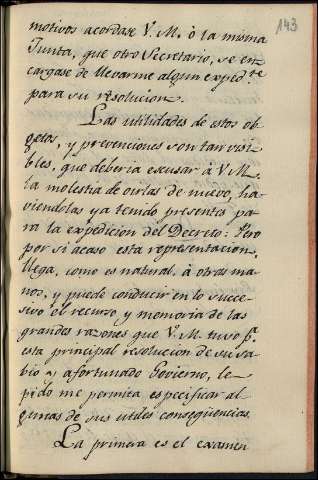 143
motivos acordase V. M. ò la misma
Junta, que otro Secretario, se en
cargase de llevarme algun exped.te
para su resolucion.
Las utilidades de estos ob
getos, y prevenciones son tan visi
bles, que deberia escusar à V. M.
la molestia de oirlas de nuevo, ha
viendolas ya tenido presentes pa
ra la expedicion del Decreto: Pero
por si acaso esta representacion,
llega, como es natural, à otras ma
nos, y puede conducir en lo succe
sivo el recurso y memoria de las
grandes razones que V. M. tuvo p.a
esta principal resolucion de su sa
bio y afortunado Govierno, le
pido me permita especificar al
gunas de sus utiles conseqüencias.
La primera es el examen